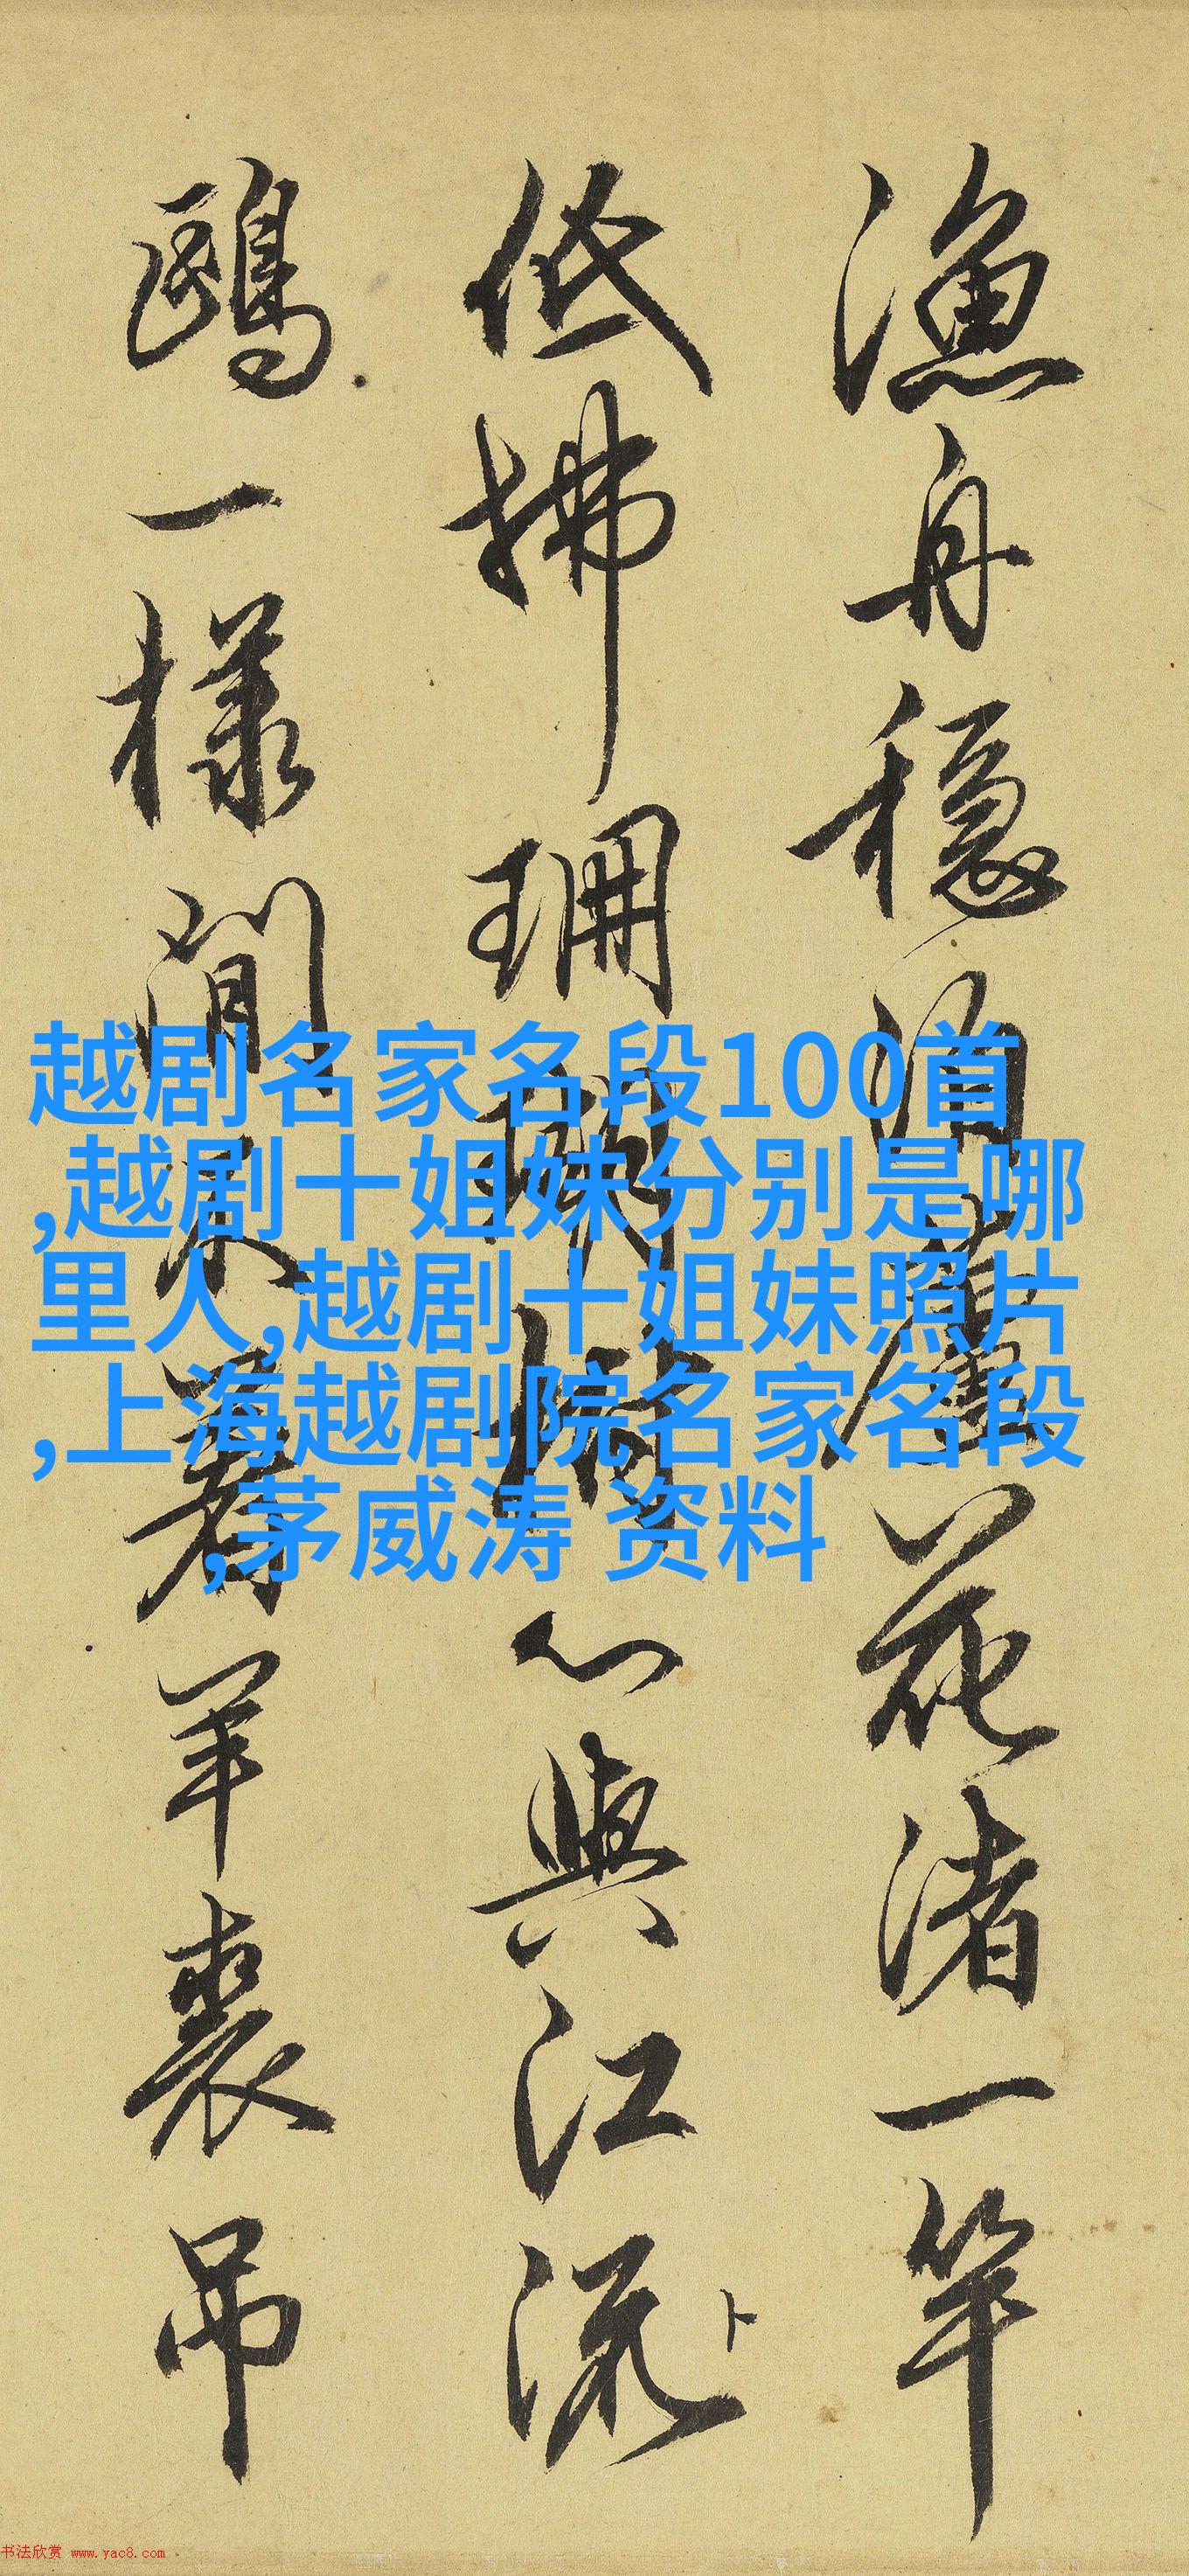 漁舟穩泊蘆花渚一竿
低拂珊瑚樹心與江流
鷗一樣閒不署羊裘吊
越剧名家名段100首
,越剧十姐妹分别是哪
里人,越剧十姐妹照片
,上海越剧院名家名段
,茅威涛 资料
书法欣赏 www.yac8.com